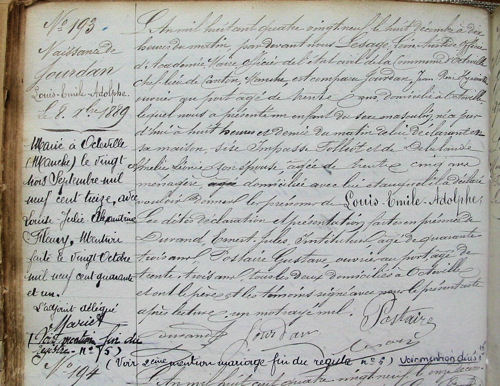 N° 193
Naissance de
Jourdan
Louis-Emile-Adolphe.
le 8 Xbre 1889
Marié à Octeville
(Manche) le vingt
trois Septembre mil
neuf cent treize, avec
Louise Julie Alexandrine
Fleury, Mention
faite le vingt Octobre
mil neuf cent quarante
et un.
L'adjoint délégué
Mariet
fin du
registre n° 5)
L'An mil huit cent quatre vingt neuf, le huit décembre à dix
heures du matin, par devant nous Lesage,
d'Académie, Maire, Officier de l'état civil de la Commune d'Octeville
chef-lieu de Canton, Manche, est comparu Jourdan, Jean
ouvrier au port âgé de trente ans, domicilié à Octeville,
lequel nous a présenté un enfant du sexe masculin, né
d'hui à huit heures et demie du matin, de lui déclarant en
sa maison, sise Impasse et de Delalande
son épouse, âgée de trente cinq ans
ménagère domiciliée avec lui et auquel il a déclaré
vouloir donner les prénoms de Louis-Emile-Adolphe.
Les dites déclaration et présentation faites en présence de
Durand, Ernest Jules, Instituteur, âgé de quarante
trois ans, Postaire Gustave, ouvrier au port âgé de
trente-trois ans, tous les deux domiciliés à Octeville
et ont le père et les témoins signé avec nous le présent acte
après lecture, un mot rayé nul.
Durand Jourdan Postaire
(Voir 2ème mention mariage fin du registre n° 5) Voir mention
N° 194
L'An mil huit cent quatre vingt neuf, le onze